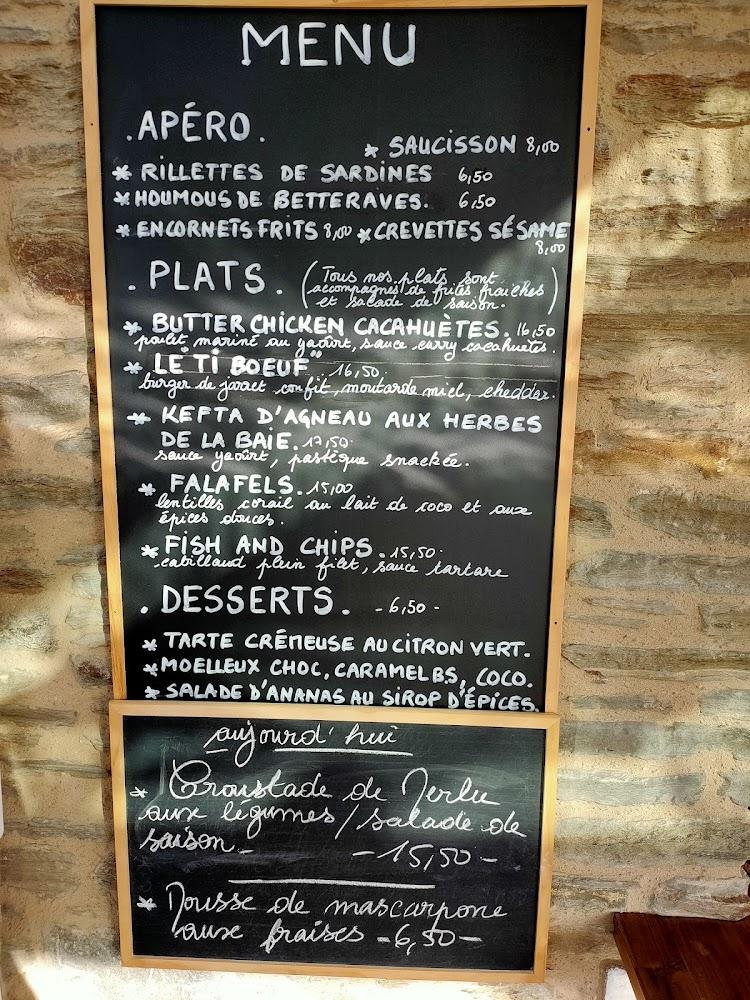 MENU
.APÉRO.
* SAUCISSON 8,00
* RILLETTES DE SARDINES 6,50
* HOUMOUS DE BETTERAVES. 6,50
* ENCORNETS FRITS 8,00 * CREVETTES SÉSAME
8,00
. PLATS. (Tous nos plats sont
accompagnés de frites fraiches
et salade de saison.)
* BUTTER CHICKEN CACAHUÈTES. 16,50
poulet mariné au yaourt, sauce curry cacahuetes.
* LE "TI BOEUF" 16,50
burger de jarret confit, moutarde miel, cheddar.
* KEFTA D'AGNEAU AUX HERBES
DE LA BAIE. 17,50
sauce yaourt, pastèque snackée.
* FALAFELS. 15,00
lentilles corail au lait de coco et aux
épices douces.
* FISH AND CHIPS. 15,50
cabillaud plein filet, sauce tartare
. DESSERTS. - 6,50 -
* TARTE CRÉMEUSE AU CITRON VERT.
* MOELLEUX CHOC, CARAMEL BS, COCO.
* SALADE D'ANANAS AU SIROP D'ÉPICES.
aujourd'hui
* Croustade de Merlu
aux légumes / salade de
saison - - 15,50 -
* Mousse de mascarpone
aux fraises - 6,50 -